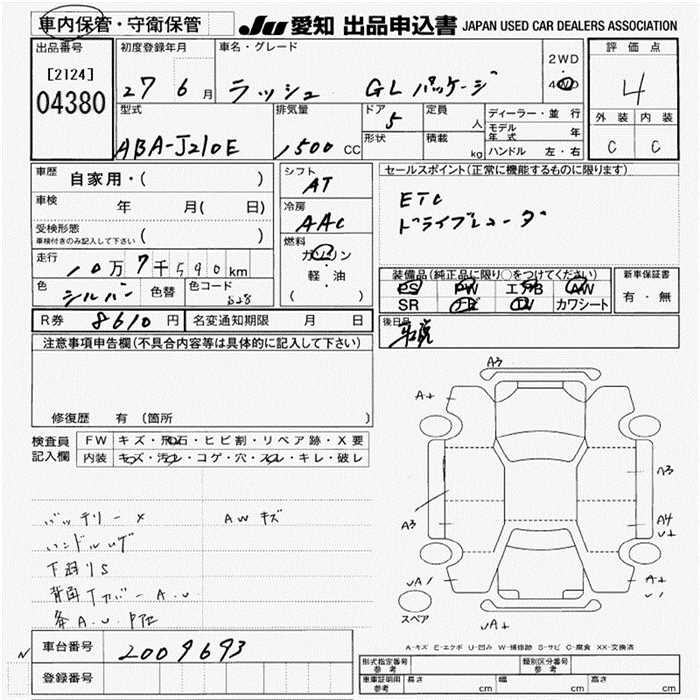 車内保管・守衛保管
JU 愛知 出品申込書 JAPAN USED CAR DEALERS ASSOCIATION
出品番号
[2124]
04380
初度登録年月
27 6月
車名・グレード
ラッシュ GL パッケージ
2WD
4WD
評価点
4
外装 内装
C C
型式
ABA-J210E
排気量
1500 CC
ドア
5
形状
定員
人
積載
kg
ディーラー・並行
モデル年式 年
ハンドル 左・右
車歴 自家用・( )
車検 年 月( 日)
受検形態
車検付きのみ記入して下さい ( )
走行
10万7千590km
色 シルバー 色替 色コード
シフト
AT
冷房
AAC
燃料
ガソリン
軽・油
( )
セールスポイント(正常に機能するものに限ります)
ETC
ドライブレコーダ
装備品(純正品に限り○をつけてください)
PS PW エアB AW
SR ナビ TV カワシート
新車保証書
有・無
後日品
R券 8610円 名変通知期限 月 日
注意事項申告欄(不具合内容等は具体的に記入して下さい)
修復歴 有 (箇所 )
検査員記入欄
FW キズ・飛石・ヒビ割・リペア跡・X要
内装 キズ・汚れ・コゲ・穴・スレ・キレ・破レ
バッテリー X AWキズ
ハンドルスレ
下廻りS
A3
A+
A3
A3
A4
U+
UA1
A+
UA+
スペア
A-キズ E-エクボ U-凹み W-補修跡 S-サビ C-腐食 XX-交換済
N
車台番号 2009693
登録番号
形式指定番号 参考
類別区分番号 参考
車庫証明用 参考 長さ cm 幅 cm 高さ cm